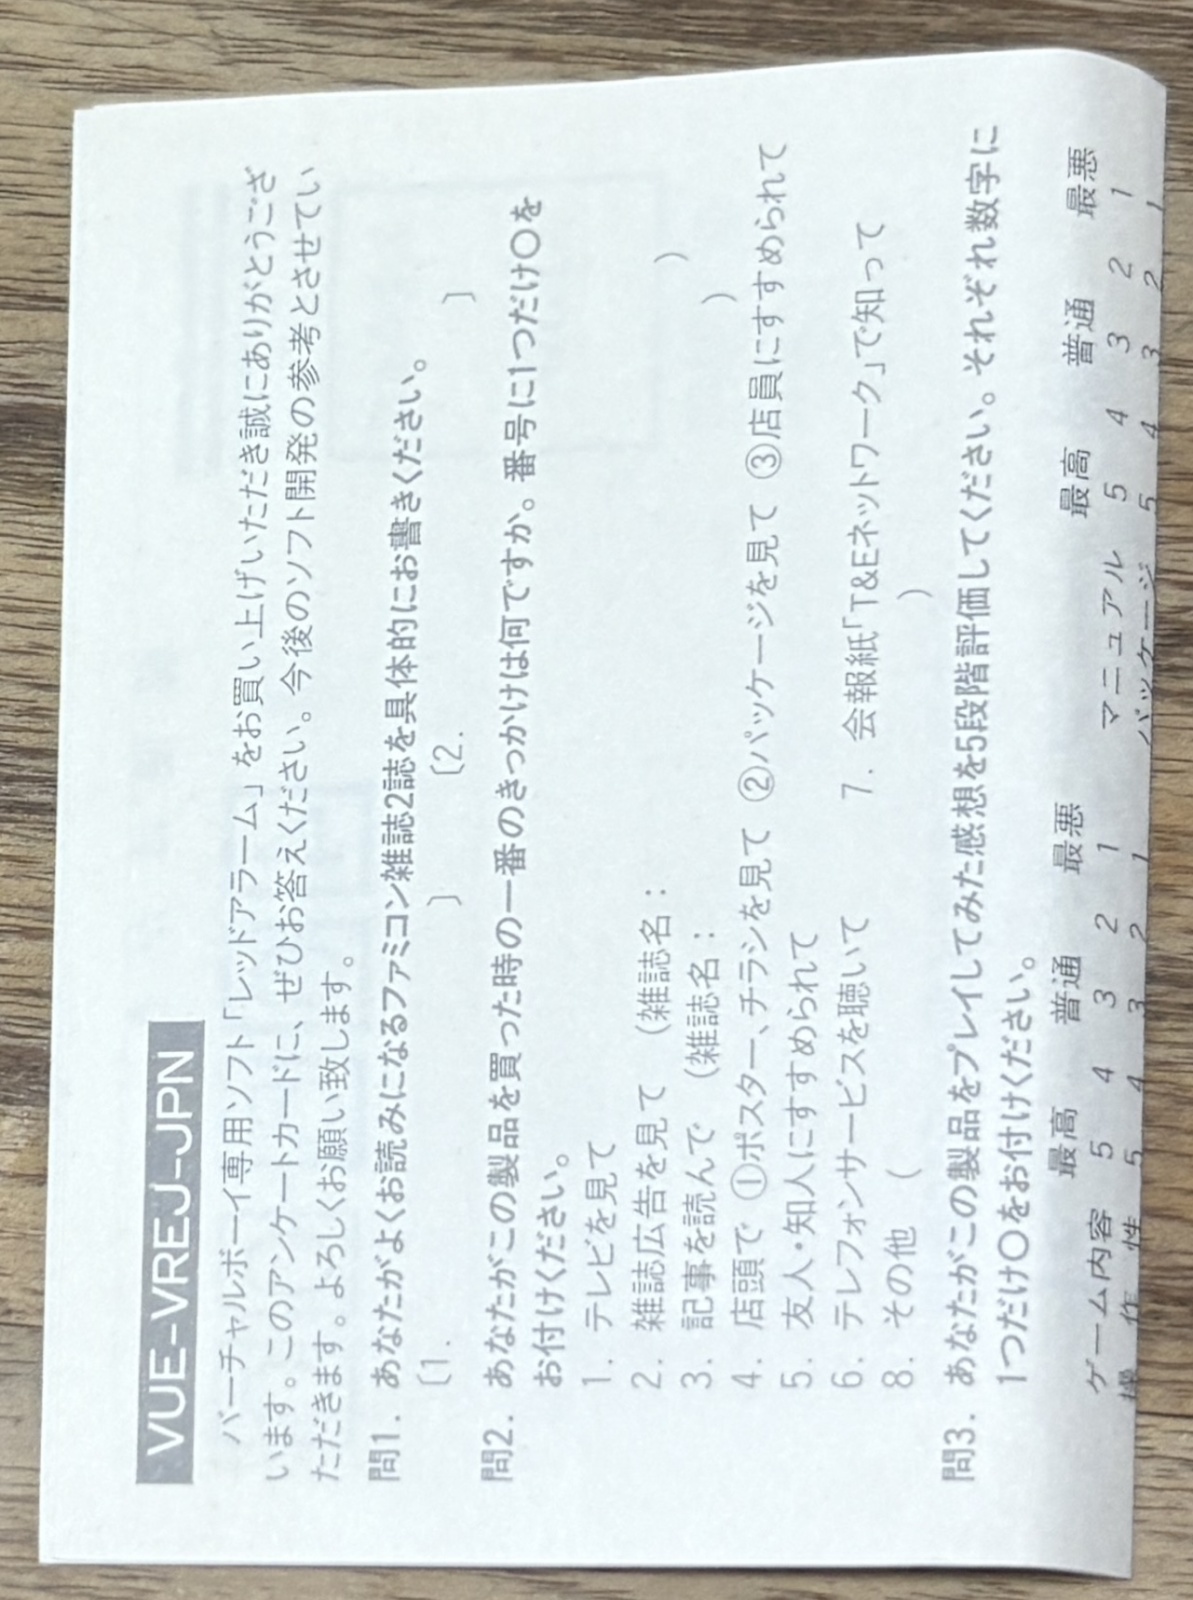 VUE-VREJ-JPN
バーチャルボーイ専用ソフト「レッドアラーム」をお買い上げいただき誠にありがとうござ
います。このアンケートカードに、ぜひお答えください。今後のソフト開発の参考とさせてい
ただきます。よろしくお願い致します。
問1. あなたがよくお読みになるファミコン雑誌2誌を具体的にお書きください。
〔1. 〕 〔2. 〕
問2. あなたがこの製品を買った時の一番のきっかけは何ですか。番号に1つだけ〇を
お付けください。
1. テレビを見て
2. 雑誌広告を見て (雑誌名: )
3. 記事を読んで (雑誌名: )
4. 店頭で ①ポスター、チラシを見て ②パッケージを見て ③店員にすすめられて
5. 友人・知人にすすめられて
6. テレフォンサービスを聴いて 7. 会報紙「T&Eネットワーク」で知って
8. その他 ( )
問3. あなたがこの製品をプレイしてみた感想を5段階評価してください。それぞれ数字に
1つだけ〇をお付けください。
最高 普通 最悪 最高 普通 最悪
ゲーム内容 5 4 3 2 1 マニュアル 5 4 3 2 1
操作性 5 4 3 2 1 パッケージ 5 4 3 2 1